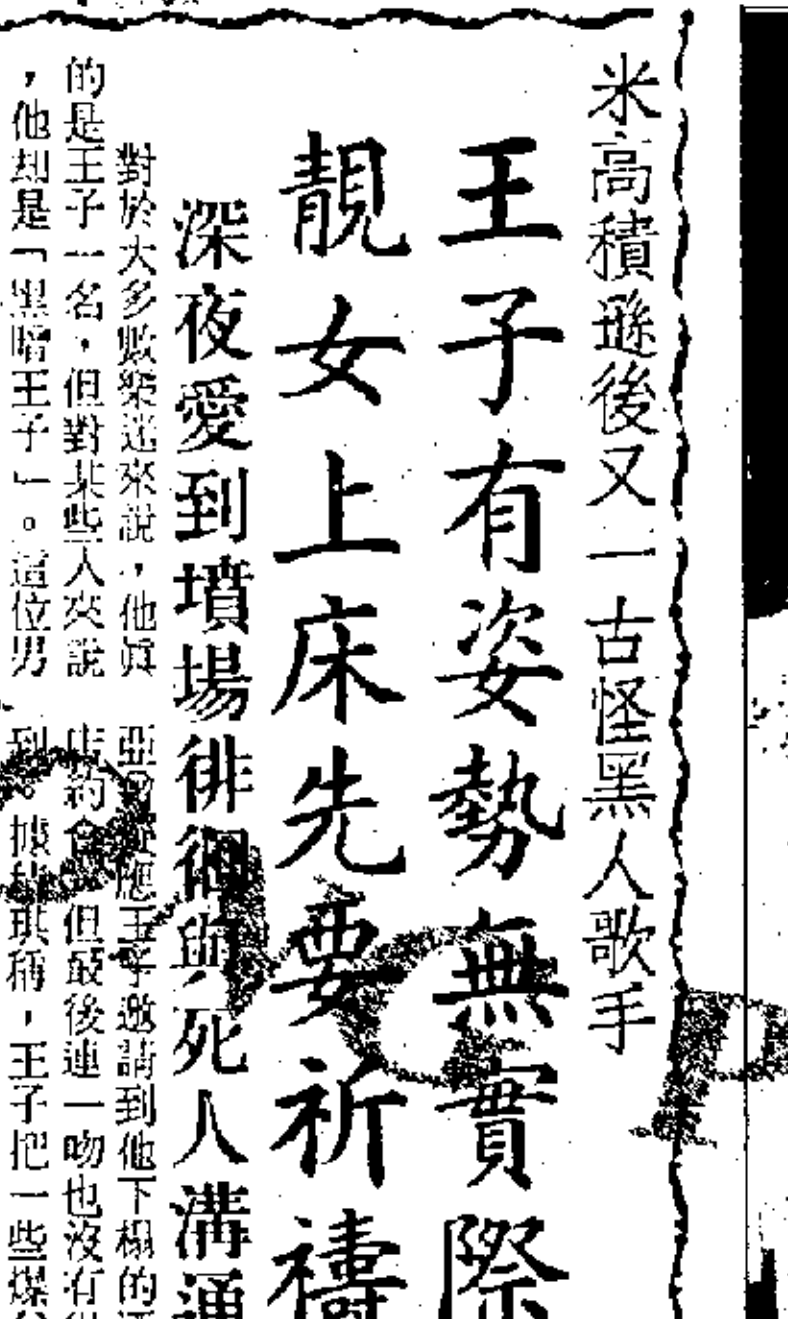 米高積遜後又一古怪黑人歌手
王子有姿勢無實際
靚女上床先要祈禱
深夜愛到墳場徘徊與死人溝通
對於大多數樂迷來說，他眞
的是王子一名，但對某些人來說
，他却是「黑暗王子」。這位男
亞應王子邀請到他下榻的酒
店約會但最後連一吻也沒有得
到。據琪稱，王子把一些煤